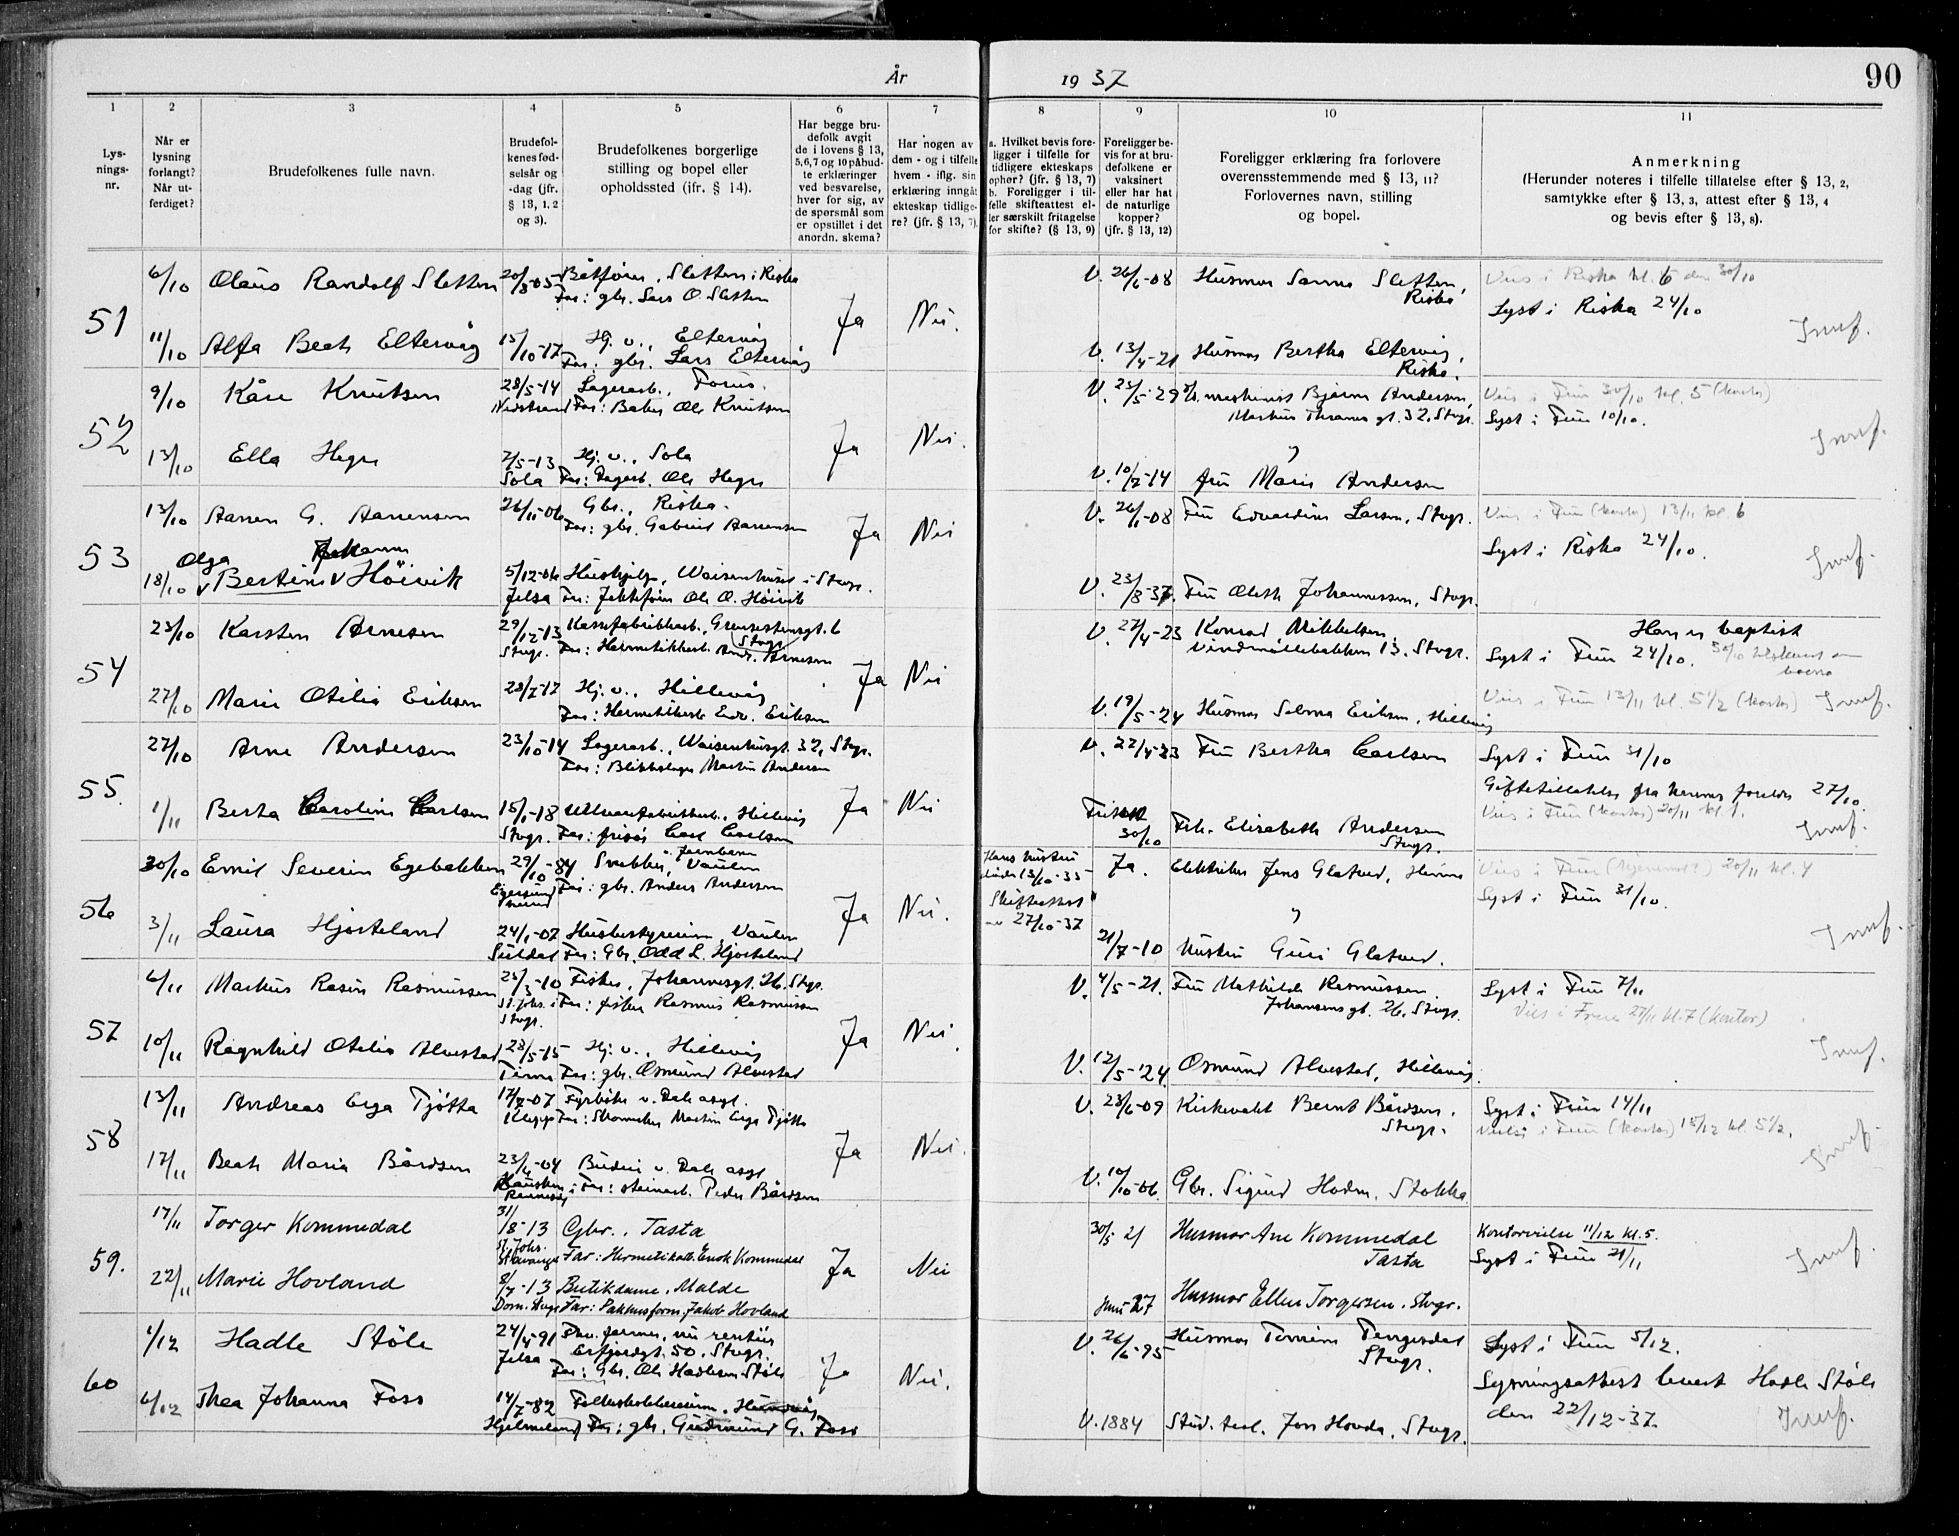 År 1937
90
1 2 3 4 5 6 7 8 9 10 11
Lysningsnr.
Når er lysning forlangt? Når utferdiget?
Brudefolkenes fulle navn.
Brudefolkenes fødselsår og -dag (jfr. § 13, 1, 2 og 3).
Brudefolkenes borgerlige stilling og bopel eller opholdssted (ifr. § 14).
Har begge brudefolk avgit de i lovens § 13, 5,6,7 og 10 påbudte erklæringer ved besvarelse, hver for sig, av de spørsmål som er opstillet i det anordn. skema?
Har nogen av dem - og i tilfelle hvem - iflg. sin erklæring inngått ekteskap tidligere? (jfr. § 13, 7).
a. Hvilket bevis foreligger i tilfelle for tidligere ekteskaps ophør? (jfr. § 13, 7)
b. Foreligger i tilfelle skifteattest eller særskilt fritagelse for skifte? (§ 13, 9)
Foreligger bevis for at brudefolkene er vaksinert eller har hat de naturlige kopper? (jfr. § 13, 12)
Foreligger erklæring fra forlovere overensstemmende med § 13, 11? Forlovernes navn, stilling og bopel.
Anmerkning
(Herunder noteres i tilfelle tillatelse efter § 13, 2, samtykke efter § 13, 3, attest efter § 13, 4 og bevis efter § 13, 8).
51
6/10 Olaus Randolf Sletten 20/8-05 Båtfører, Sletten i Riska
Far: gbr. Lars O. Sletten
V. 26/6-08 Husmor Sanna Sletten, Riska
Vies i Riska kl. 6 den 30/10
Lyst i Riska 24/10
Ja Nei.
11/10 Alfa Beate Eltervåg 15/10-17 Hj. v., Eltervåg
Far: gbr. Lars Eltervåg
V. 13/4-21 Husmor Bertha Eltervåg, Riska.
52
9/10 Kåre Knutsen 28/5-14 Lagerarb., Forus.
Nedstrand Far: Baker Ole Knutsen
V. 25/5-29 maskinist Bjarne Andersen,
Markus Thranes gt. 32, Stvgr.
Vies i Frue 30/10 kl. 5 (kontor)
Lyst i Frue 10/10.
Ja Nei.
13/10 Ella Hegre 7/5-13 Hj. v., Sola
Sola Far: Dagarb. Ole Hegre
V. 10/7-14 fru Marie Andersen
53
13/10 Aanen G. Aanensen 26/11-06 Gbr., Riska.
Far: gbr. Gabriel Aanensen
V. 26/1-08 Fru Edvardine Larsen, Stvgr.
Vies i Frue (kontor) 13/11 kl. 6
Lyst i Riska 24/10.
Ja Nei
Olga Johanne
18/10 Bertine Høivik 5/12-06 Hushjelp, Waisenhuset i Stvgr.
Jelsa Far: Jektefører Ole O. Høivik
V. 23/8-37. Fru Oleth Johannessen, Stvgr.
54
23/10 Karsten Arnesen 29/12-13 Kassefabrikkarb., Grensesteinsgt. 6 Stvgr.
Stvgr. Far: Hermetikkarb. Andr. Arnesen
V. 27/4-23 Konrad Mikkelsen,
Vindmøllebakken 13, Stvgr.
Han er baptist
Lyst i Frue 24/10.
Ja Nei
27/10 Marie Otilie Eriksen 28/7-17 Hj. v., Hillevåg
Far: Hermetikkarb. Edv. Eriksen
V. 19/5-24 Husmor Selma Eriksen, Hillevåg
Vies i Frue 13/11 kl. 5 1/2 (kontor)
55.
27/10 Arne Andersen 23/10-14 Lagerarb., Waisenhusgt. 32, Stvgr.
Far: Blikkslager Martin Andersen
V. 22/4-23 Fru Bertha Carlsen
Lyst i Frue 31/10
Giftetillatelse fra hennes foreldre 27/10.
Ja Nei
1/11 Berta Caroline Carlsen 15/1-18 Ullvarefabrikkarb., Hillevåg
Stvgr. Far: frisør Carl Carlsen
30/10 Frk. Elisabeth Andersen Stvgr.
Vies i Frue (kontor) 20/11 kl. 1.
56
30/10 Emil Severin Egebakken 29/10-84 Snekker, Jernbane Vaulen
Egersund Far: gbr. Anders Anderson
Hans hustru døde 13/10-35
Skifteattest av 27/10-37
Ja. Elektriker Jens Glatved, Hinna
Lyst i Frue 31/10.
Ja Nei.
3/11 Laura Hjorteland 24/1-07 Husbestyrerinne, Vaulen
Suldal Far: Gbr. Odd L. Hjorteland
21/7-10 Hustru Guri Glatved.
57
6/11 Markus Rasin Rasmussen 25/3-10 Fisker, Johannesgt. 26, Stvgr.
St. Johs. i Stvgr. Far: fisker Rasmus Rasmussen
V. 4/5-21. Fru Mathilde Rasmussen
Johannesgt. 26, Stvgr.
Lyst i Frue 7/11
Vies i Frue 27/11 kl. 7 (kontor)
Ja Nei
10/11 Ragnhild Otelie Alvestad 28/5-15 Hj. v., Hillevåg
Far: gbr. Osmund Alvestad
V. 12/5-24 Osmund Alvestad, Hillevåg.
58
13/11 Andreas Erga Tjøtta 17/7-07 Fyrbøter v. Dale asyl.
Klepp Far: Skomaker Martin Erga Tjøtta
V. 23/6-09 Kirkevakt Bernt Bårdsen. Stvgr.
Lyst i Frue 14/11
Vielse i Frue (kontor) 15/12 kl. 5 1/2.
Ja Nei.
17/11 Beate Maria Bårdsen 23/4-04 Budeie v. Dale asyl
Far: steinarb. Peder Bårdsen
V. 10/10-06. Gbr. Sigurd Hodne, Stokka
59.
17/11 Torger Kommedal 31/8-13 Gbr., Tasta
St. Johs. Stavanger Far: Hermetikarb. Enok Kommedal
30/5 21 Husmor Ane Kommedal Tasta
Kontorvielse 11/12 kl. 5.
Lyst i Frue 21/11
Ja Nei
22/11 Marie Hovland 8/7-13 Butikdame, Malde
Dom. Stvgr Far: Pakhusform. Jakob Hovland
Juni 27 Husmor Ellen Torgersen, Stvgr.
60
1/12 Hadle Støle 24/4-91 Fhv. farmer, nu rentier
Jelsa Erfjordgt. 50, Stvgr.
Far: Gbr. Ole Hadlesen Støle
V. 26/6-95 Husmor Tomine Tengesdal Stvgr.
Lyst i Frue 5/12.
Lysningsattest levert Hadle Støle
den 22/12-37.
Ja Nei.
6/12 Thea Johanna Foss 14/7-82 Folkeskolelærerinne,
Hjelmeland Far: gbr. Gudmund G. Foss
V. 1884 Stud. teol. Jon Hovda, Stvgr.